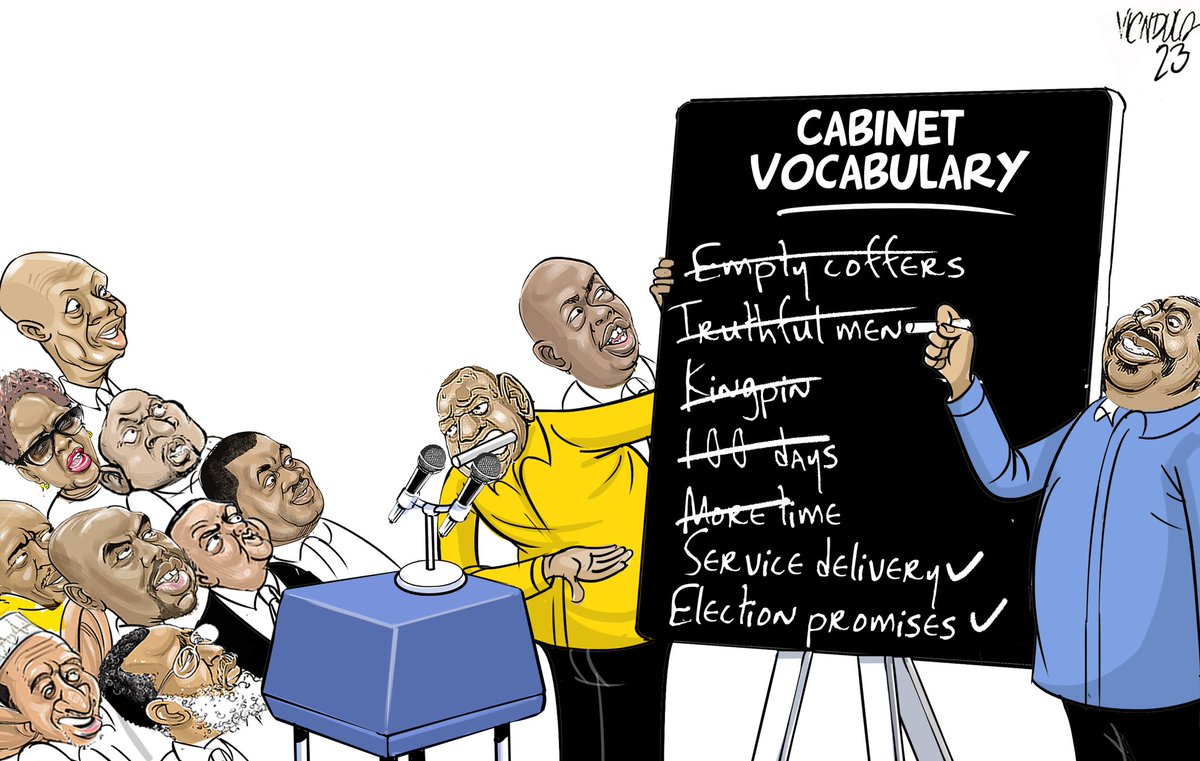 VICNDULA
23
CABINET
VOCABULARY
Empty coffers
Truthful men
Kingpin
100 days
More time
Service delivery ✓
Election promises ✓